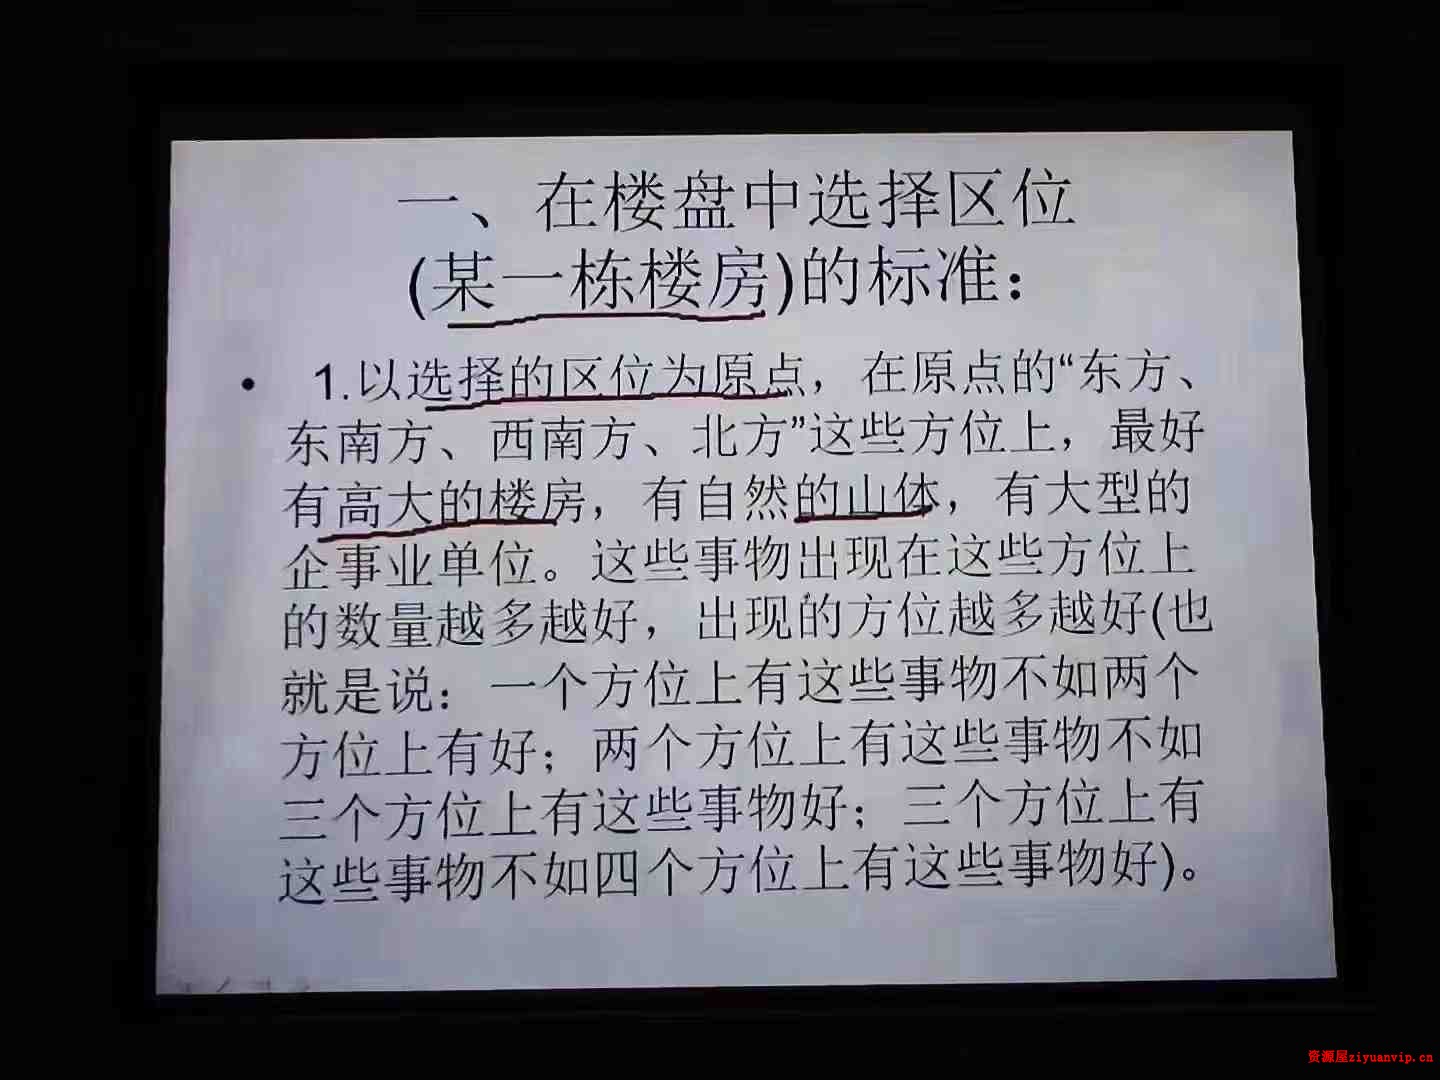 一、在楼盘中选择区位
(某一栋楼房)的标准：
• 1.以选择的区位为原点，在原点的“东方、
东南方、西南方、北方”这些方位上，最好
有高大的楼房，有自然的山体，有大型的
企事业单位。这些事物出现在这些方位上
的数量越多越好，出现的方位越多越好(也
就是说：一个方位上有这些事物不如两个
方位上有好；两个方位上有这些事物不如
三个方位上有这些事物好；三个方位上有
这些事物不如四个方位上有这些事物好)。
资源屋ziyuanvip.cn